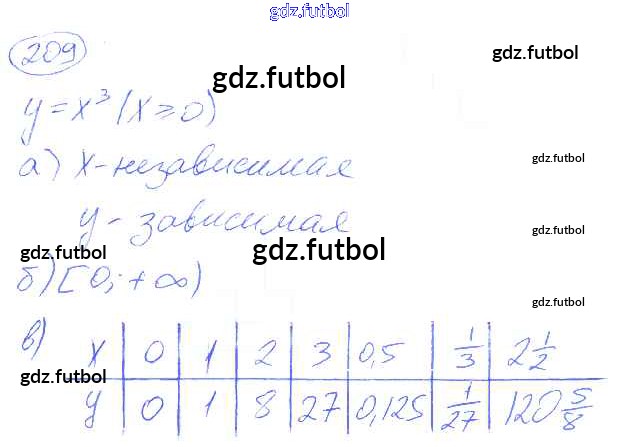 gdz.futbol
209
gdz.futbol
gdz.futbol
y = x³ (x ≥ 0)
а) x - независимая
gdz.futbol
y - зависимая
gdz.futbol
gdz.futbol
gdz.futbol
б) [0; +∞)
gdz.futbol
в) x | 0 | 1 | 2 | 3 | 0,5 | 1/3 | 2 1/2
gdz.futbol
y | 0 | 1 | 8 | 27 | 0,125 | 1/27 | 120 5/8